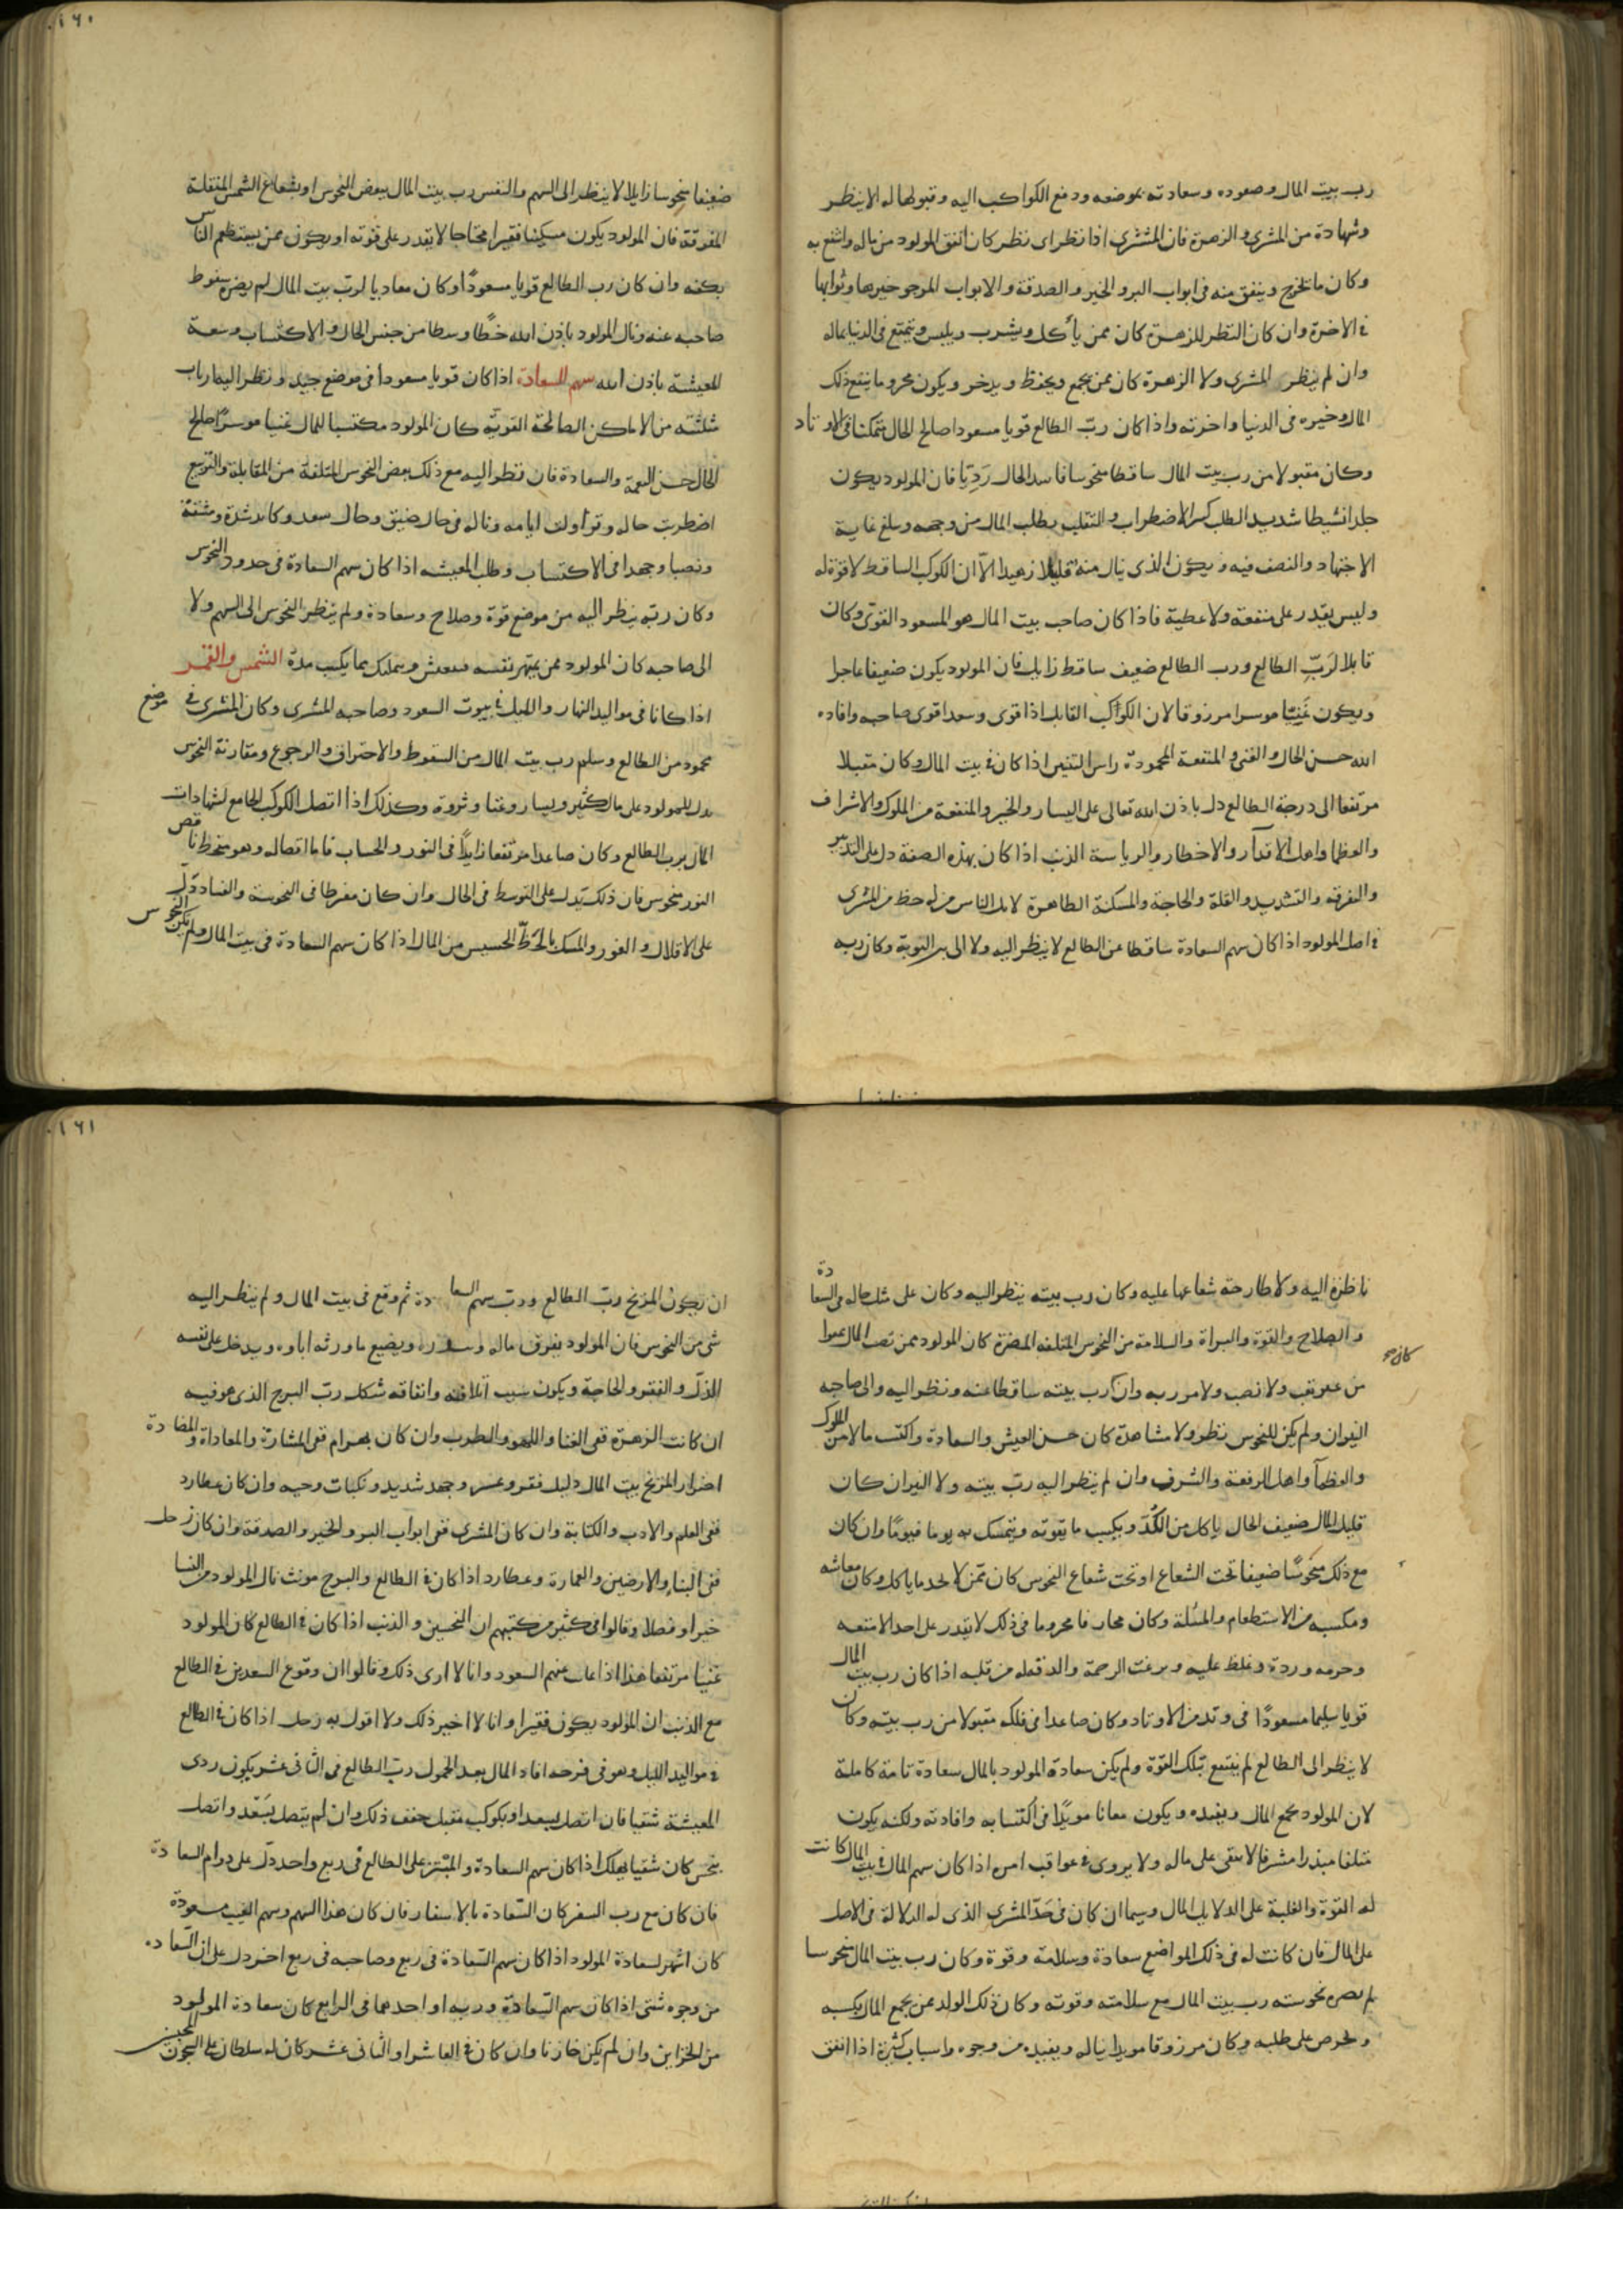 رب بيت المال وصعوده وسعادته بموضعه ودفع الكواكب اليه وقبولها له الا ينظر
وشهادة من المشترى والزهرة فان المشترى اذا نظر اى نظر كان انفق المولود من ماله وانتفع به
وكان ما يخرج وينفق منه فى ابواب البر والخير والصدقة والابواب المرجو خيرها وثوابها
فى الاخرة وان كان النظر للزهرة كان ممن يأكل ويشرب ويلبس ويتمتع فى الدنيا بماله
وان لم ينظر المشترى ولا الزهرة كان ممن يجمع ويحفظ ويدخر ويكون محروما ينتفع ذلك
المال وخيره فى الدنيا واخرته واذا كان ربّ الطالع قويا مسعودا صالح الحال متمكنا فى الاوتاد
وكان مقبولا من رب بيت المال ساقطا منحوسا فاسد الحال رَدِيّا فان المولود يكون
جلدا نشيطا شديد الطلب كثير الاضطراب والتقلب يطلب المال من وجهه ويبلغ غاية
الاجتهاد والنصف فيه ويكون الذى ينال منه قليلا زهيدا الاّ ان الكوكب الساقط لا قوة له
وليس يقدر على منفعة ولا عطية فاذا كان صاحب بيت المال هو المسعود القوىّ وكان
قابلا لرَبّ الطالع ورب الطالع ضعيف ساقط زايل فان المولود يكون ضعيفا عاجزا
ويكون غَنِيّا موسرا مرزوقا لان الكواكب القابل اذا قوى وسعد اقوى صاحبه وافاده
الله حسن الحال والغنى والمنفعة المحمودة راس التنين اذا كان فى بيت المال وكان مقبلا
مرتفعا الى درجة الطالع دل باذن الله تعالى على اليسار والخير والمنفعة من الملوك والاشراف
والعظما واهل الاقدار والاخطار والرياسة الذنب اذا كان بهذه الصفة دل على التدبير
والتفرقه والتشديد والقلة والحاجة والمسكنة الظاهرة لابد الناس من له حظ من المشترى
فى اصل المولود اذا كان سهم السعادة ساقطا عن الطالع لا ينظر اليه ولا الى نير النوبة وكان ربه
١٦٠
ضعيفا منحوسا زايلا لا ينظر الى السهم والنفس رب بيت المال ببعض النحوس او بشعاع الشمس المتقلة
المفرقة فان المولود يكون مسكينا فقيرا محتاجا لا يقدر على قوته او يكون ممن يستطعم الناس
بكفه وان كان رب الطالع قويا مسعودًا وكان معاديا لربّ بيت المال لم يضره سقوط
صاحبه عنه ونال المولود باذن الله حظّا وسطا من جنس الحال والاكتساب وسعة
المعيشة باذن الله سهم السعادة اذا كان قويا مسعودا فى موضع جيد ونظر اليه ارباب
مثلثته من الاماكن الصالحة القويّة كان المولود مكتسبا للمال غنيا موسرًا صالح
الحال حسن النعمة والسعادة فان نظر اليه مع ذلك بعض النحوس المتلفة من المقابلة والتربيع
اضطربت حاله وتداولت ايامه وناله فى حال ضيق وحال سعد وكابد شدة ومشقة
ونصبا وجهدا فى الاكتساب وطلب المعيشه اذا كان سهم السعادة فى حدود النحوس
وكان ربّه ينظر اليه من موضع قوة وصلاح وسعادة ولم ينظر النحوس الى السهم ولا
الى صاحبه كان المولود ممن يمتهن نفسه ويتمسك بما يكسب مدّة الشمس والقمر
اذا كانا فى مواليد النهار والليل فى بيوت السعود وصاحبه المشترى وكان المشترى فى موضع
محمود من الطالع وسلم رب بيت المال من السقوط والاحتراق والرجوع ومقارنة النحوس
يدل للمولود على مال كثير ويسار وغنا وثروة وكذلك اذا اتصل الكوكب الجامع لشهادات
المال برب الطالع وكان صاعدا مرتفعا زايدًا فى النور والحساب فاما اتصاله وهو منحط ناقص
النور منحوس فان ذلك يدل على التوسط فى الحال وان كان مفرطا فى النحوسة والفساد دّل
على الاقلال والفقر والمسك بالحَظّ الخسيس من المال اذا كان سهم السعادة فى بيت المال ولم يكن النحوس
ناظرة اليه ولا طارحة شعاعها عليه وكان رب بيته ينظر اليه وكان على مثل حاله فى السعادة
والصلاح والقوة والبراة والسلامة من النحوس المتلفه المضرة كان المولود ممن نصب المال عفوا
كان صح
من غير تعب ولا نصب ولا مرربه وان كان رب بيته ساقطا عنه ونظر اليه والى صاحبه
النيران ولم يكن للنحوس نظر ولا مشاهدة كان حسن العيش والسعادة واكتسب مالا من الملوك
والعظمآ واهل الرفعة والشرف وان لم ينظر اليه ربّ بيته ولا النيران كان
قليل المال ضعيف الحال ياكل من الكدّ ويكسب ما يقوته ويتمسك به يوما فيومًا وان كان
مع ذلك منحوسًا ضعيفا تحت الشعاع او تحت شعاع النحوس كان ممّن لا يجد ما ياكل وكان معاشه
ومكسبه من الاستطعام والمسئلة وكان محارفا محروما فى ذلك لا يقدر على احد الا منعه
وحرمه ورده وغلظ عليه ونزعت الرحمة والرقة له من قلبه اذا كان رب بيت المال
قويا سليما مسعودًا فى وتد من الاوتاد وكان صاعدا فى فلكه مقبولا من رب بيته وكان
لا ينظر الى الطالع لم ينتفع بتلك القوّة ولم يكن سعادة المولود بالمال سعادة تامة كاملة
لان المولود يجمع المال ويفيده ويكون معانا مويدًا فى اكتسابه وافادته ولكنه يكون
متلفا مبذرا مسرفا لا يبقى على ماله ولا يروى فى عواقب امره اذا كان سهم المال فى بيت المال كانت
له القوة والغلبة على الدلايل المال وسيما ان كان فى حَدّ المشترى الذى له الدلالة فى الاصل
على المال فان كانت له فى ذلك المواضع سعادة وسلامة وقوة وكان رب بيت المال منحوسا
لم يضره نحوسته رب بيت المال مع سلامته وقوته وكان ذلك الولد ممن يجمع المال ويكسبه
ويحرص على طلبه وكان مرزوقا مويدا يناله ويفيده من وجوه واسباب كثيرة اذا اتفق
١٦١
ان يكون المريخ ربّ الطالع وربّ سهم السعادة ثم وقع فى بيت المال ولم ينظر اليه
شى من النحوس فان المولود يفرق ماله ويضيع ما ورثه اباوه ويدخل على نفسه
الذلّ والفقر والحاجة ويكون سبب اتلافه وانفاقه شكل ربّ البرج الذى هو فيه
ان كانت الزهرة ففى الغنا واللهو والطرب وان كان بهرام ففى المشارّة والمعاداة والمضادة
اضرار المريخ بيت المال دليل فقر وعسر وجهد شديد ونكبات وحبه وان كان عطارد
ففى العلم والادب والكتابة وان كان المشترى ففى ابواب البر والخير والصدقة وان كان زحل
ففى البناء والارضين والعمارة وعطارد اذا كان فى الطالع والبرج مونث نال المولود من النسا
خيرا وفضلا وقالوا فى كثير من كتبهم ان النحسين والذنب اذا كان فى الطالع كان المولود
غنيا مرتفعا هذا اذا غاب عنهم السعود وانا لا ارى ذلك وقالوا ان وقوع السعدين فى الطالع
مع الذنب ان المولود يكون فقيرا وانا لا اخير ذلك ولا اقول به زحل اذا كان فى الطالع
فى مواليد الليل وهو فى فرحه افاد المال بعد الخمول ربّ الطالع فى الثانى عشر يكون ردى
المعيشة شقيا فان اتصل بسعد او بكوكب مقبل خفف ذلك وان لم يتصل بسَعْد واتصل
بنحس كان شقيا يهلك اذا كان سهم السعادة والمبتز على الطالع فى ربع واحد دلّ على دوام السعادة
فان كان مع رب السفر كان السّعادة بالاسفار فان كان هذا السهم وسهم الغيب مسعودة
كان اشهر لسعادة المولود اذا كان سهم السّعادة فى ربع وصاحبه فى ربع اخر دل على ان السّعاده
من وجوه شتى اذا كان سهم السّعادة وربه او احدهما فى الرابع كان سعادة المولود
من الخزاين وان لم يكن خازنا وان كان فى العاشر او الثانى عشر كان له سلطان على السجون